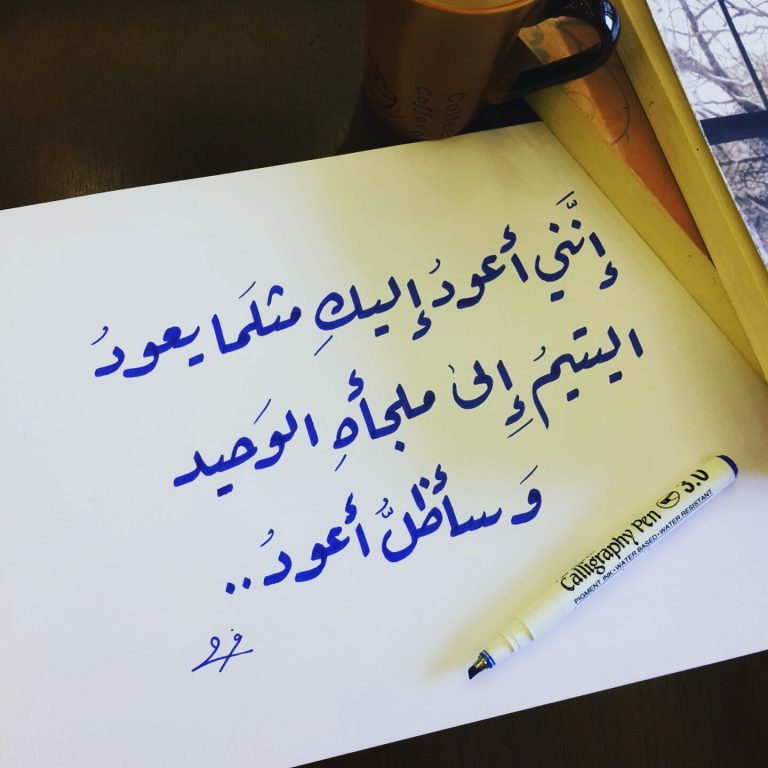 Coffee
Coffee
إنَّني أعودُ إليكِ مثلَما يعودُ
اليتيمُ إِلى ملجأهِ الوَحيد
وَسأظلُّ أعودُ..
Calligraphy Pen 3.0
PIGMENT INK • WATER BASED • WATER RESISTANT